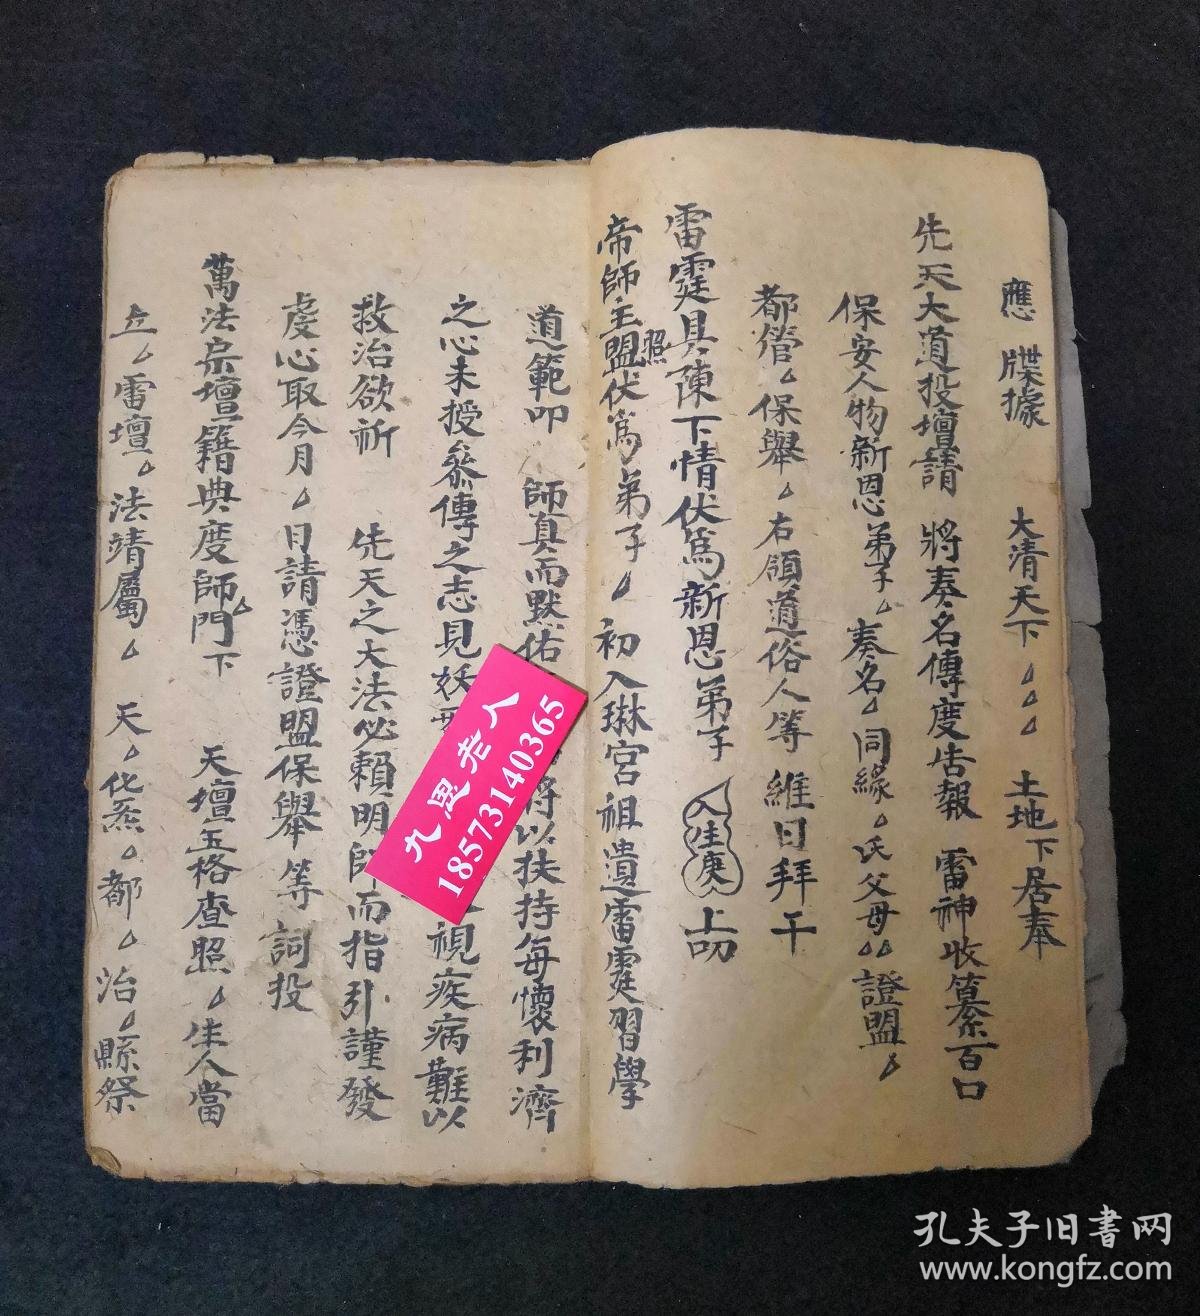 應 牒據 大清天下 厶厶厶 土地下居奉
先天大道投壇請 將奏名傳度告報 雷神收纂百口
保安人物新恩弟子厶奏名厶同緣厶氏父母厶厶證盟厶
都管厶保舉厶右領道俗人等 維日拜干
雷霆具陳下情伏爲新恩弟子 人生庚厶 上叩
帝師主盟照伏爲弟子厶初入琳宮祖遺雷霆習學
道範叩 師真而默佑 將以扶持每懷利濟
之心未授叅傳之志見妖 視疾病難以
救治欲祈 先天之大法必賴明師而指引謹發
虔心取今月厶日請憑證盟保舉等 詞投
萬法宗壇籍典度師厶門下 天壇玉格查照厶生人當
立厶雷壇厶法靖屬厶 天厶化炁厶都厶治厶縣祭
九恩老人
18573140365
孔夫子旧书网
www.kongfz.com